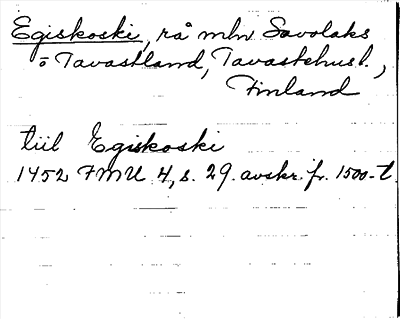 Egiskoski, rå mln Savolaks
o Tavastland, Tavastehusl.,
Finland
till Egiskoski
1452 FMU 4, s. 29. avskr. fr. 1500-t.